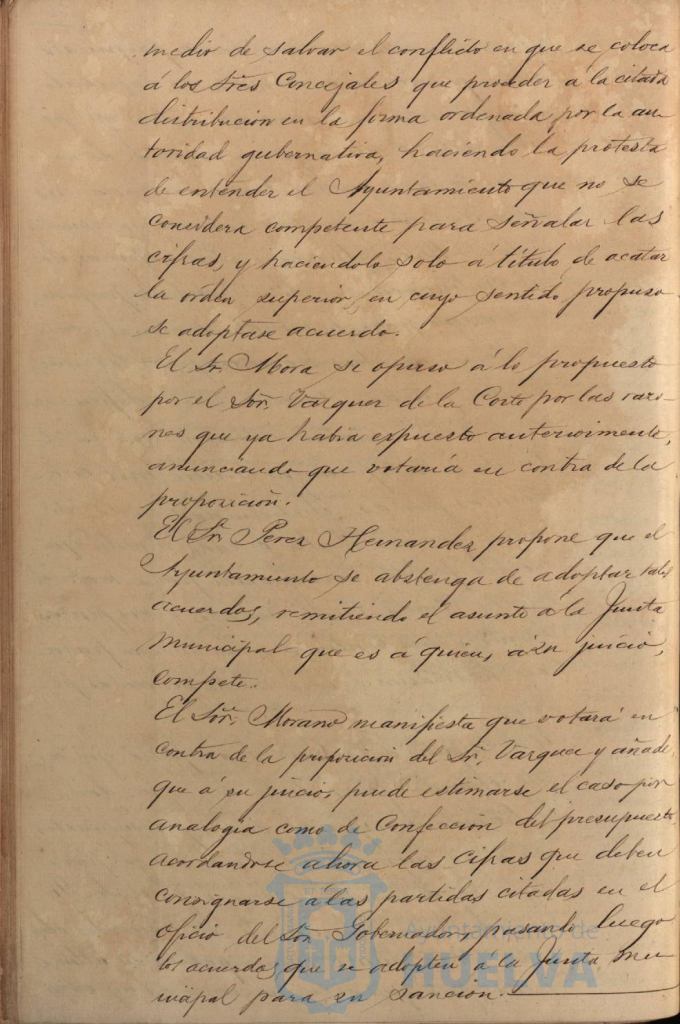 medio de salvar el conflicto en que se coloca
á los Sres Concejales que proceder á la citada
distribución en la forma ordenada por la au-
toridad gubernativa, haciendo la protesta
de entender el Ayuntamiento que no se
considera competente para señalar las
cifras, y haciendolo solo á título de acatar
la orden superior, en cuyo sentido propuso
se adoptase acuerdo.
El Sr. Mora se opuso á lo propuesto
por el Sor. Vazquez de la Corte por las razo-
nes que ya habia expuesto anteriormente,
anunciando que votaría en contra de la
proposición.
El Sr. Perez Hernandez propone que el
Ayuntamiento se abstenga de adoptar tales
acuerdos, remitiendo el asunto á la Junta
Municipal que es á quien, á su juicio,
compete.
El Sor. Morano manifiesta que votará en
contra de la proposicion del Sr. Vazquez y añade
que á su juicio, puede estimarse el caso por
analogia como de Confección del presupuesto
acordandose ahora las cifras que deben
consignarse á las partidas citadas en el
oficio del Sor. Gobernador, pasando luego
los acuerdos que se adopten á la Junta mu-
nicipal para su sanción.
HUELVA